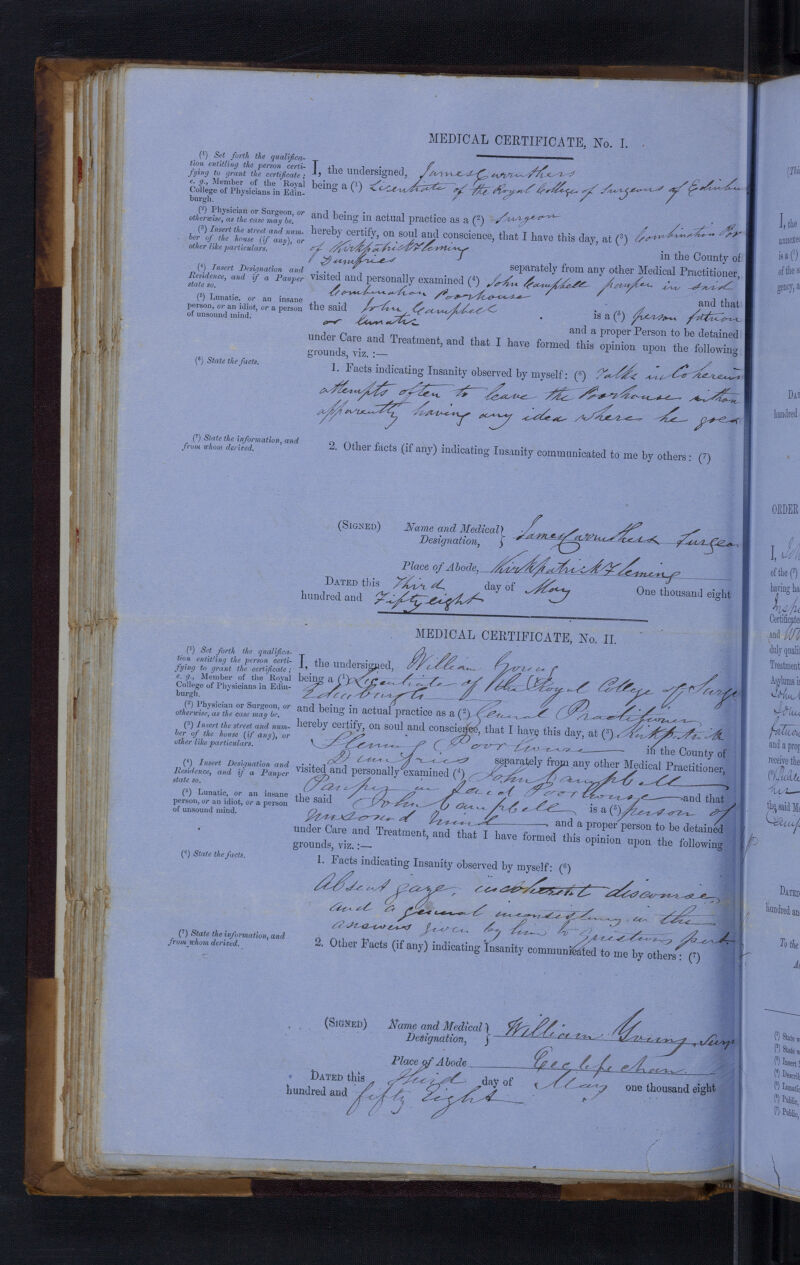 MEDICAL CERTIFICATE, No. I.
(¹) Set forth the qualifica-
tion entitling the person certi-
fying to grant the certificate;
e. g., Member of the Royal
College of Physicians in Edin-
burgh.
(²) Physician or Surgeon, or
otherwise, as the case may be.
(³) Insert the street and num-
ber of the house (if any), or
other like particulars.
(⁴) Insert Designation and
Residence, and if a Pauper
state so.
(⁵) Lunatic, or an insane
person, or an idiot, or a person
of unsound mind.
(⁶) State the facts.
(⁷) State the information, and
from whom derived.
I, the undersigned, James Carruthers
being a (¹) Licentiate of the Royal College of Surgeons of Edinbu
and being in actual practice as a (²) Surgeon
hereby certify, on soul and conscience, that I have this day, at (³) Combination Poor
of Kirkpatrick Fleming in the County of
Dumfries separately from any other Medical Practitioner,
visited and personally examined (⁴) John Campbell pauper in said
Combination Poorhouse and that
the said John Campbell is a (⁵) person fatuous
or lunatic and a proper Person to be detained
under Care and Treatment, and that I have formed this opinion upon the following
grounds, viz. :—
1. Facts indicating Insanity observed by myself: (⁶) Talks incoherent
attempts often to leave the Poorhouse withou
apparently having any idea where he goes
2. Other facts (if any) indicating Insanity communicated to me by others: (⁷)
(SIGNED) Name and Medical Designation, } James Carruthers Surgeo
Place of Abode, Kirkpatrick Fleming
DATED this Third day of May One thousand eight
hundred and Fifty eight
MEDICAL CERTIFICATE, No. II.
(¹) Set forth the qualifica-
tion entitling the person certi-
fying to grant the certificate;
e. g., Member of the Royal
College of Physicians in Edin-
burgh.
(²) Physician or Surgeon, or
otherwise, as the case may be.
(³) Insert the street and num-
ber of the house (if any), or
other like particulars.
(⁴) Insert Designation and
Residence, and if a Pauper
state so.
(⁵) Lunatic, or an insane
person, or an idiot, or a person
of unsound mind.
(⁶) State the facts.
(⁷) State the information, and
from whom derived.
I, the undersigned, William Young
being a (¹) Licentiate of the Royal College of Surge
Edinburgh
and being in actual practice as a (²) General Practitioner
hereby certify, on soul and conscience, that I have this day, at (³) Kirkpatrick
Fleming Poor house in the County of
Dumfries separately from any other Medical Practitioner,
visited and personally examined (⁴) John Campbell
Pauper in said Poorhouse and that
the said John Campbell is a (⁵) person of
unsound mind and a proper person to be detained
under Care and Treatment, and that I have formed this opinion upon the following
grounds, viz.:—
1. Facts indicating Insanity observed by myself: (⁶)
Absent gaze, incoherent discourse,
and a general inconsistency in the
answers given by him to questions put
2. Other Facts (if any) indicating Insanity communicated to me by others: (⁷)
(SIGNED) Name and Medical Designation, } William Young, Surg
Place of Abode Ecclefechan
DATED this third day of May one thousand eight
hundred and fifty Eight
I, the
annexe
is a (¹)
of the s
gency, a
DAT
hundred
ORDER
I, Jo
of the (²)
having ha
Certificate
and
duly quali
Treatment
Asylums i
and a prop
receive the
the said M
DATED
hundred an
To the